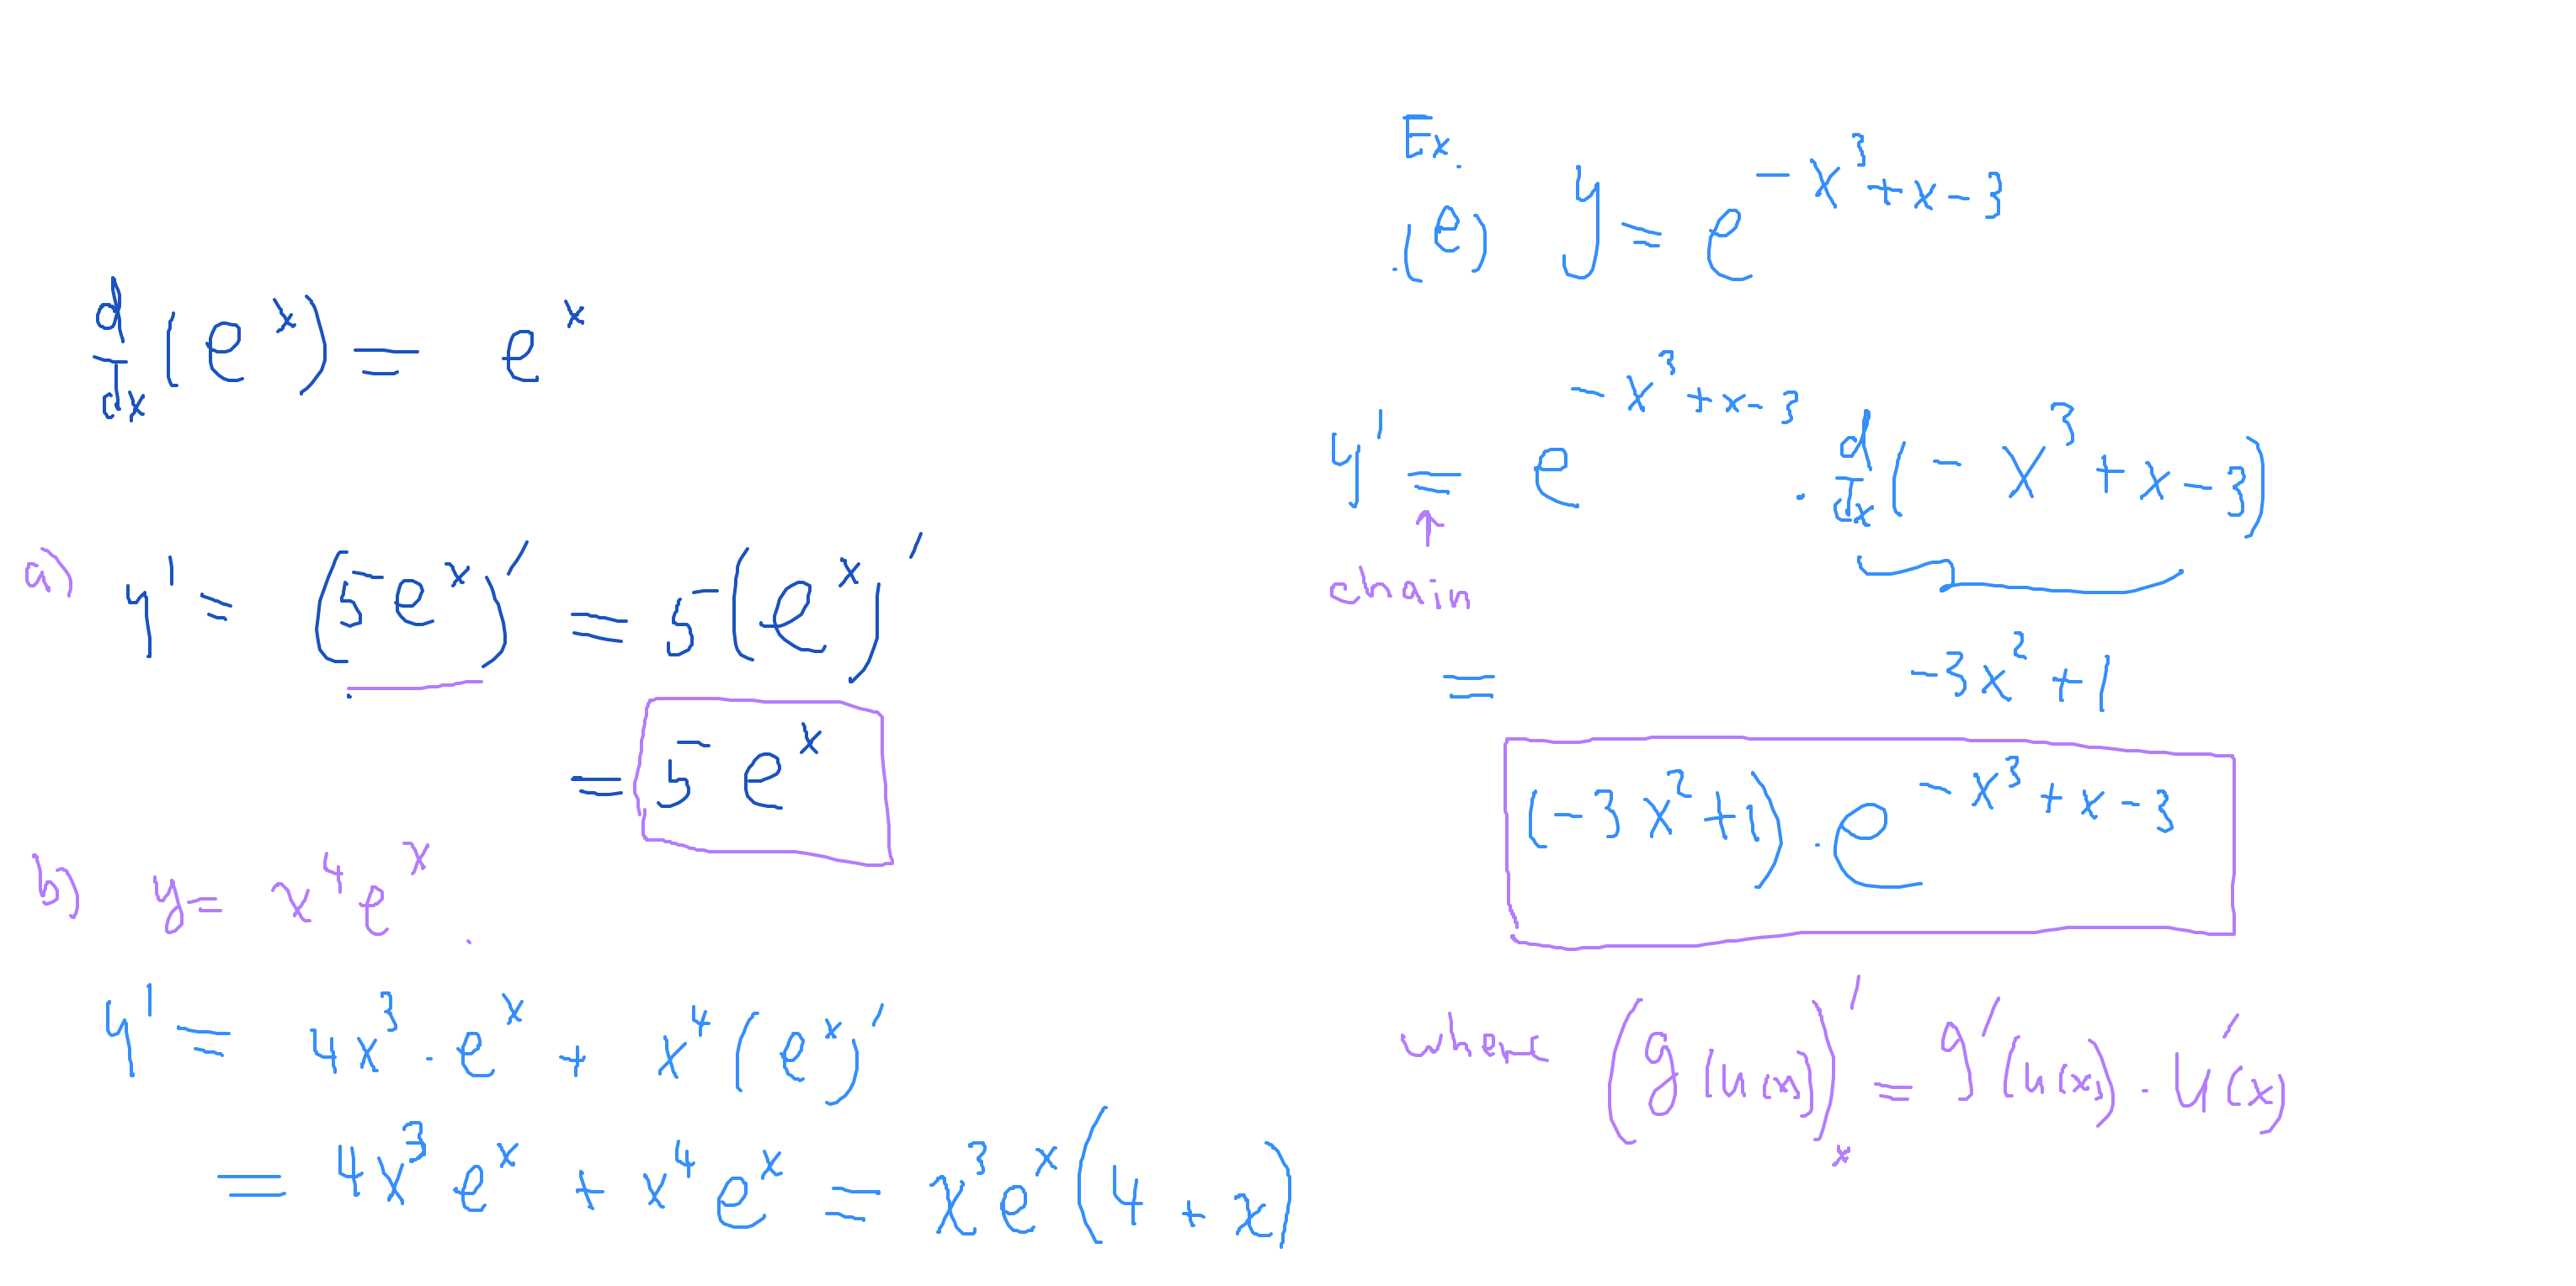 d/dx (e^x) = e^x
a) y' = (5e^x)' = 5(e^x)'
= 5 e^x
b) y = x^4 e^x.
y' = 4x^3 · e^x + x^4 (e^x)'
= 4x^3 e^x + x^4 e^x = x^3 e^x (4 + x)
Ex.
(e) y = e^(-x^3+x-3)
y' = e^(-x^3+x-3) · d/dx (-x^3 + x - 3)
↑
chain
= -3x^2 + 1
(-3x^2+1) · e^(-x^3+x-3)
where (g(u(x)))'_x = g'(u(x)) · u'(x)